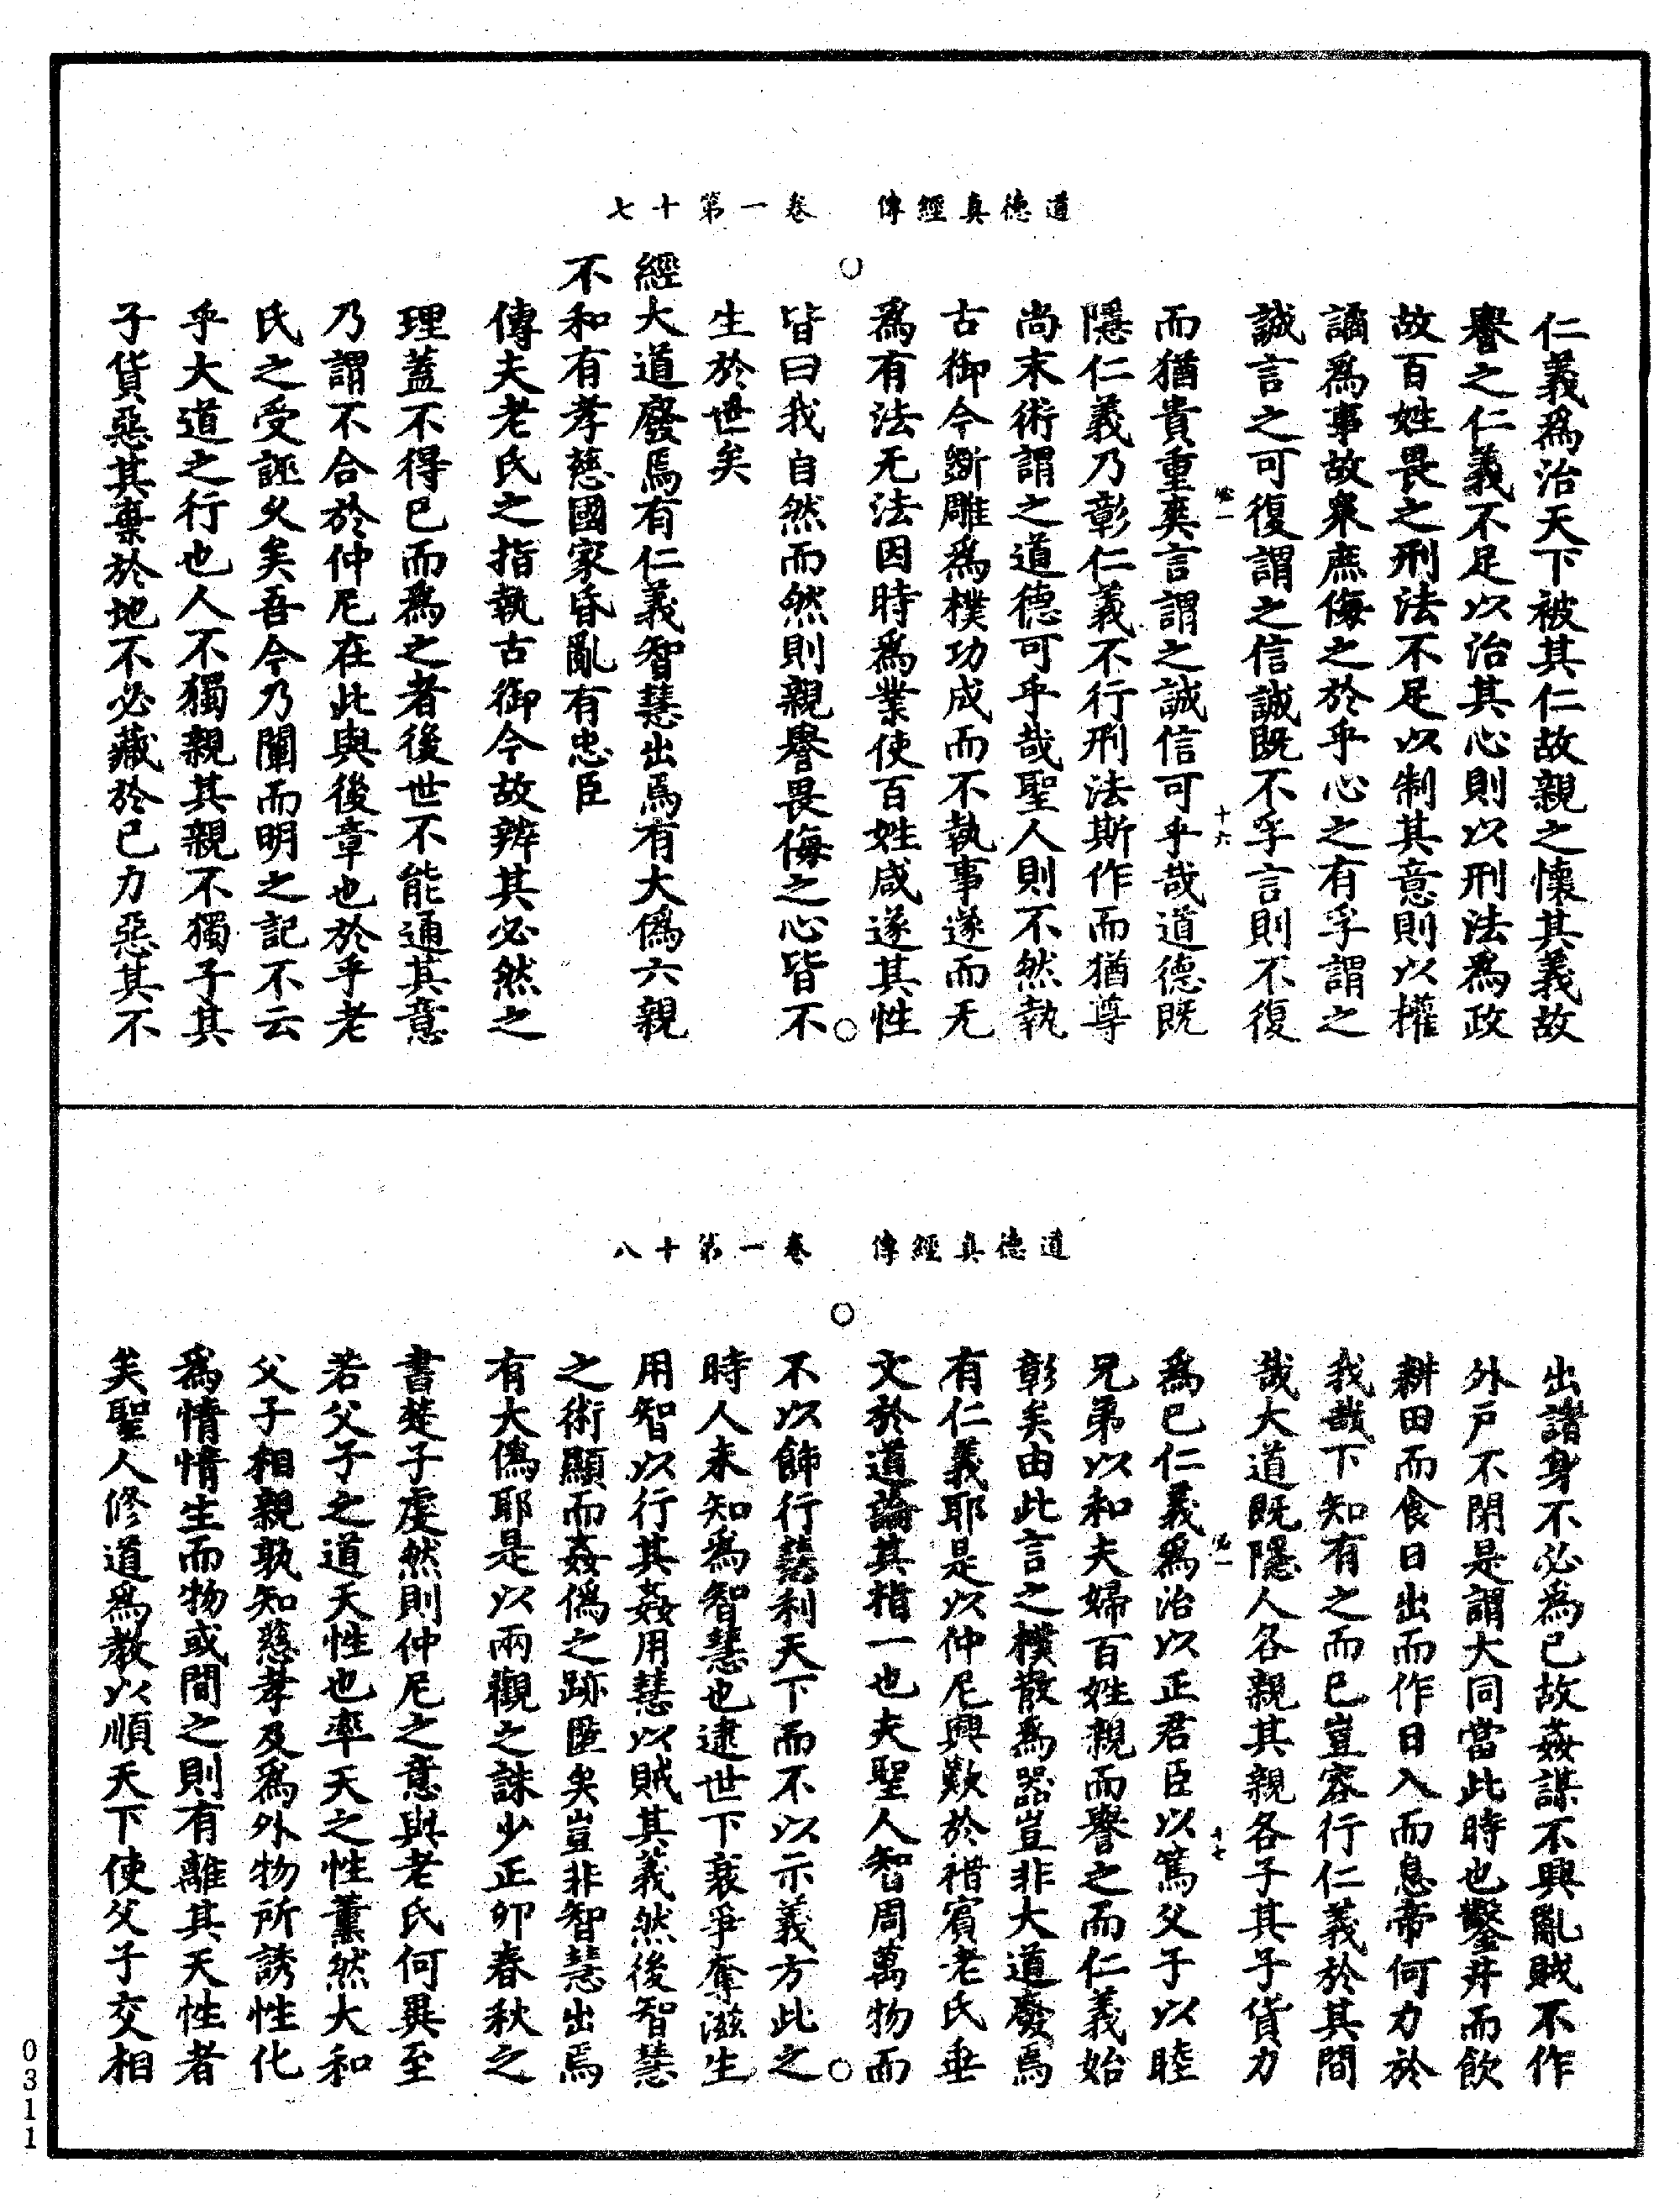 道德真經傳 卷一第十七
仁義爲治天下被其仁故親之懷其義故
譽之仁義不足以治其心則以刑法爲政
故百姓畏之刑法不足以制其意則以權
譎爲事故衆庶侮之於乎心之有孚謂之
誠言之可復謂之信誠旣不孚言則不復
必一 十六
而猶貴重爽言謂之誠信可乎哉道德旣
隱仁義乃彰仁義不行刑法斯作而猶尊
尚末術謂之道德可乎哉聖人則不然執
古御今斲雕爲樸功成而不執事遂而无
爲有法无法因時爲業使百姓咸遂其性
皆曰我自然而然則親譽畏侮之心皆不
生於世矣
經大道廢焉有仁義智慧出焉有大僞六親
不和有孝慈國家昏亂有忠臣
傳夫老氏之指執古御今故辨其必然之
理蓋不得已而爲之者後世不能通其意
乃謂不合於仲尼在此與後章也於乎老
氏之受誣久矣吾今乃闡而明之記不云
乎大道之行也人不獨親其親不獨子其
子貨惡其棄於地不必藏於已力惡其不
道德真經傳 卷一第十八
出諸身不必為已故姦謀不興亂賊不作
外戸不閉是謂大同當此時也鑿井而飲
耕田而食日出而作日入而息帝何力於
我哉下知有之而已豈容行仁義於其間
哉大道旣隱人各親其親各子其子貨力
必一 十七
爲已仁義爲治以正君臣以篤父子以睦
兄弟以和夫婦百姓親而譽之而仁義始
彰矣由此言之樸散爲器豈非大道廢焉
有仁義耶是以仲尼興歎於禮賓老氏垂
文於道論其指一也夫聖人智周萬物而
不以飾行慧利天下而不以示義方此之
時人未知爲智慧也逮世下衰爭奪滋生
用智以行其姦用慧以賊其義然後智慧
之術顯而姦僞之跡匿矣豈非智慧出焉
有大僞耶是以兩觀之誅少正卯春秋之
書楚子虔然則仲尼之意與老氏何異至
若父子之道天性也率天之性薰然大和
父子相親孰知慈孝及爲外物所誘性化
爲情情生而物或間之則有離其天性者
矣聖人修道爲教以順天下使父子交相
0311